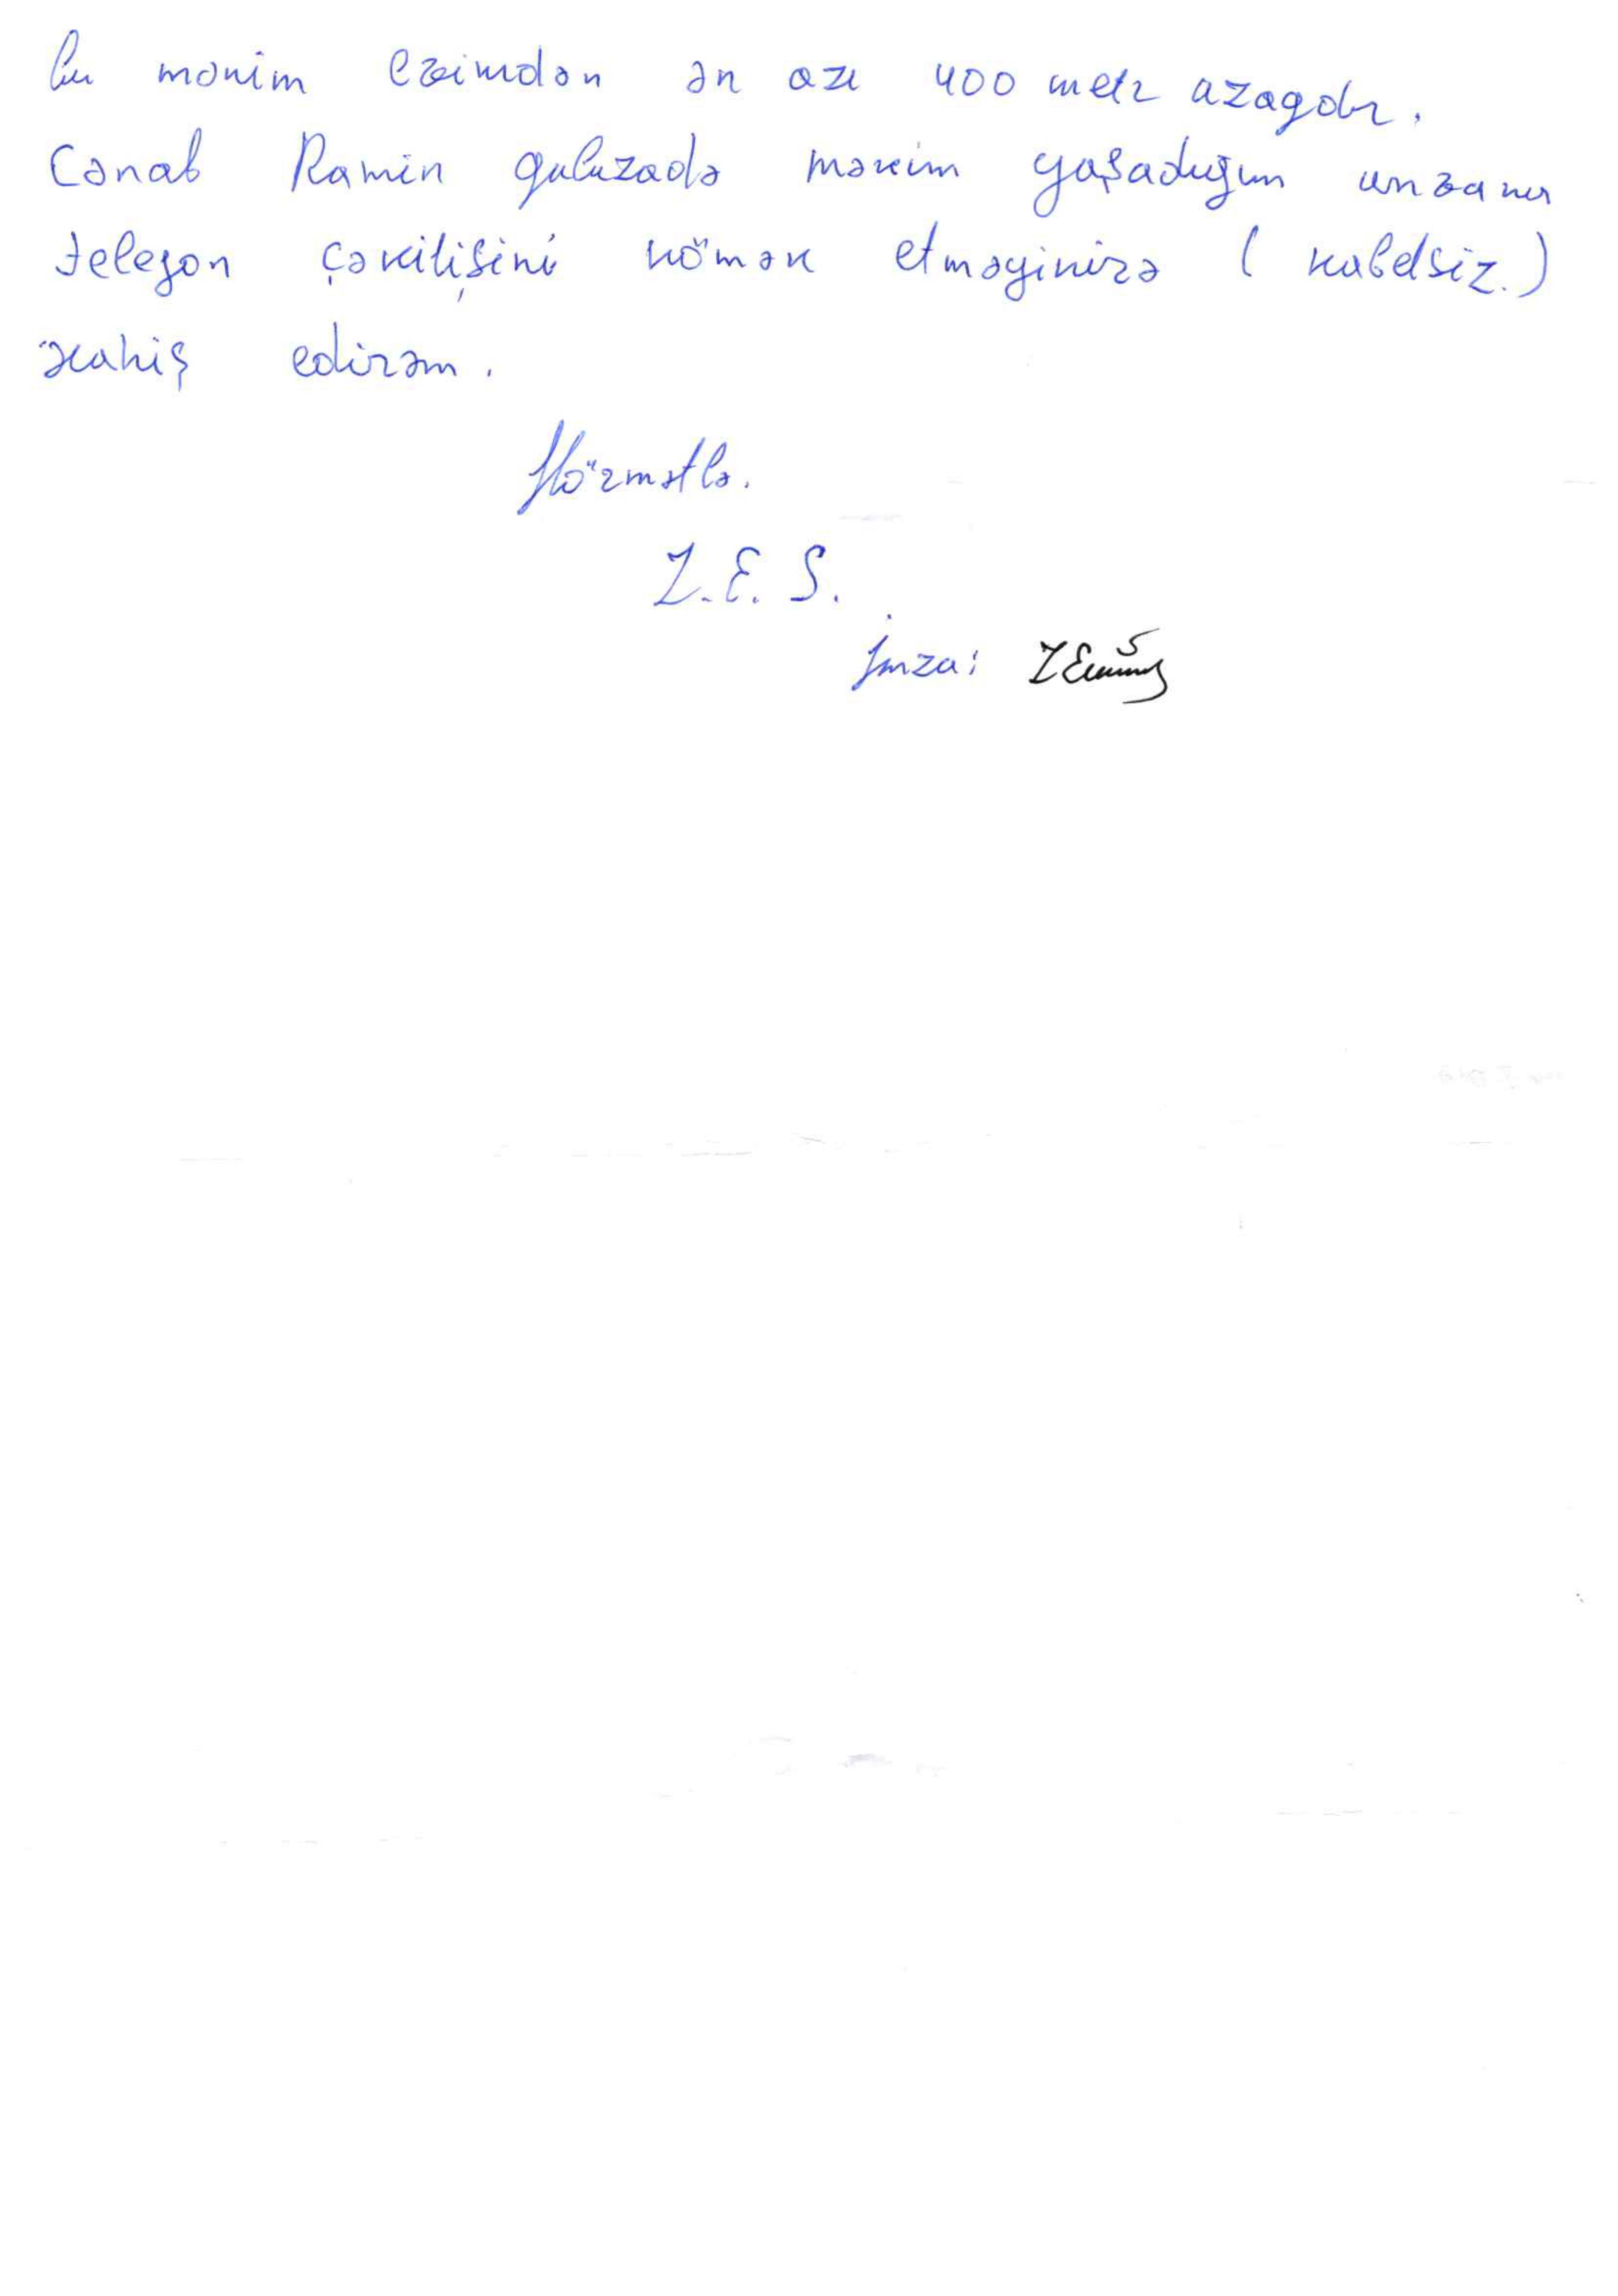 bu mənim evimdən ən azı 400 metr azaqdır.
Cənab Ramin quluzadə mənim yaşadığım ünvana
telefon çəkilişini kömək etməyinizə ( kabelsiz.)
xahiş edirəm.
Hörmətlə.
Z.E.S.
İmza: